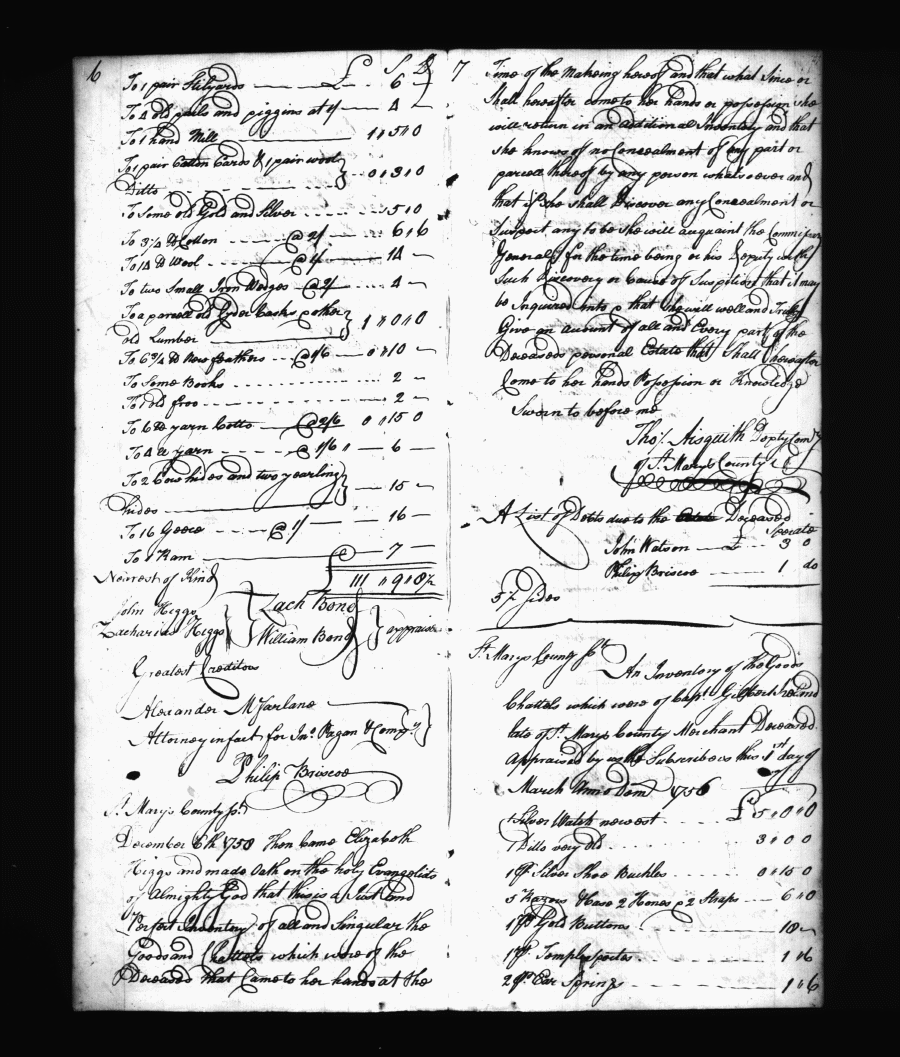 6
£ S D
To 1 pair Stilyards 6
To 4 old pails and piggins at 1/ 4 —
To 1 hand Mill 1 " 5 " 0
To 1 pair Cotton Cards & 1 pair wool
Ditto 0 " 3 " 0
To Some old Gold and Silver 5 " 0
To 3 1/4 lb Cotton @ 2/ 6 " 6
To 14 lb Wool @ 1/ 14 —
To two Small Iron Wedges @ 2/ 4 —
To a parcell old Cyder Casks & other
old Lumber 1 " 0 " 0
To 6 3/4 lb New feathers @ 1/6 " 10 —
To Some Books 2 —
To 1 old froo 2 —
To 6 lb yarn Cotto @ 2/6 0 " 15 0
To 4 lb yarn @ 1/6 6 —
To 2 Cow hides and two yearling
hides 15 —
To 16 Geese @ 1/ 16 —
To 1 Ram 7 —
111 " 9 " 8 1/2
Nearest of Kind
John Higgs
Zacharide Higgs
Zach Bond
William Bond
appraisers
Greatest Creditors
Alexander McFarlane
Attorney in fact for Jno. Pagan & Compy.
Philip Briscoe
St. Marys County Sst.
December 6th 1750 Then Came Elizabeth
Higgs and made Oath on the holy Evangelists
of Almighty God that this is a Just and
Perfect Inventory of all and Singular the
Goods and Chattels which were of the
Deceased that Came to her hands at the
7
Time of the Makeing hereof and that what Since or
Shall hereafter come to her hands or possession she
will return in an additional Inventory and that
she knows of no Concealment of any part or
parcell thereof by any person whatsoever and
that if she shall Discover any Concealment or
Suspect any to be she will acquaint the Commissary
General for the time being or his Deputy with
Such Discovery or Cause of Suspition that it may
be Inquired into & that She will well and Truly
Give an account of all and Every part of the
Deceaseds personal Estate that Shall hereafter
Come to her hands Possession or Knowledge
Sworn to before me
Thos. Aisquith Depty Comry
of St. Marys County
A List of Debts due to the Estate Deceased
Sperate
John Watson £ 3 0
Philip Briscoe 1 do
57 Sides
St. Marys County Sst.
An Inventory of the Goods
Chattels which were of Capt. Gilbert Ireland
late of St. Marys County Merchant Deceased
Appraised by us the Subscribers this 1st day of
March Anno Dom 1756
1 Silver Watch newest £ 5 " 0 " 0
1 Ditto very old 3 " 0 0
1 pr. Silver Shoe Buckles 0 " 15 0
5 Razors 1 Case 2 Hones & 2 Straps 6 " 0
1 pr Gold Buttons 18 —
1 pr. Temple Spectes 1 " 6
2 pr. Ear Springs 1 " 6